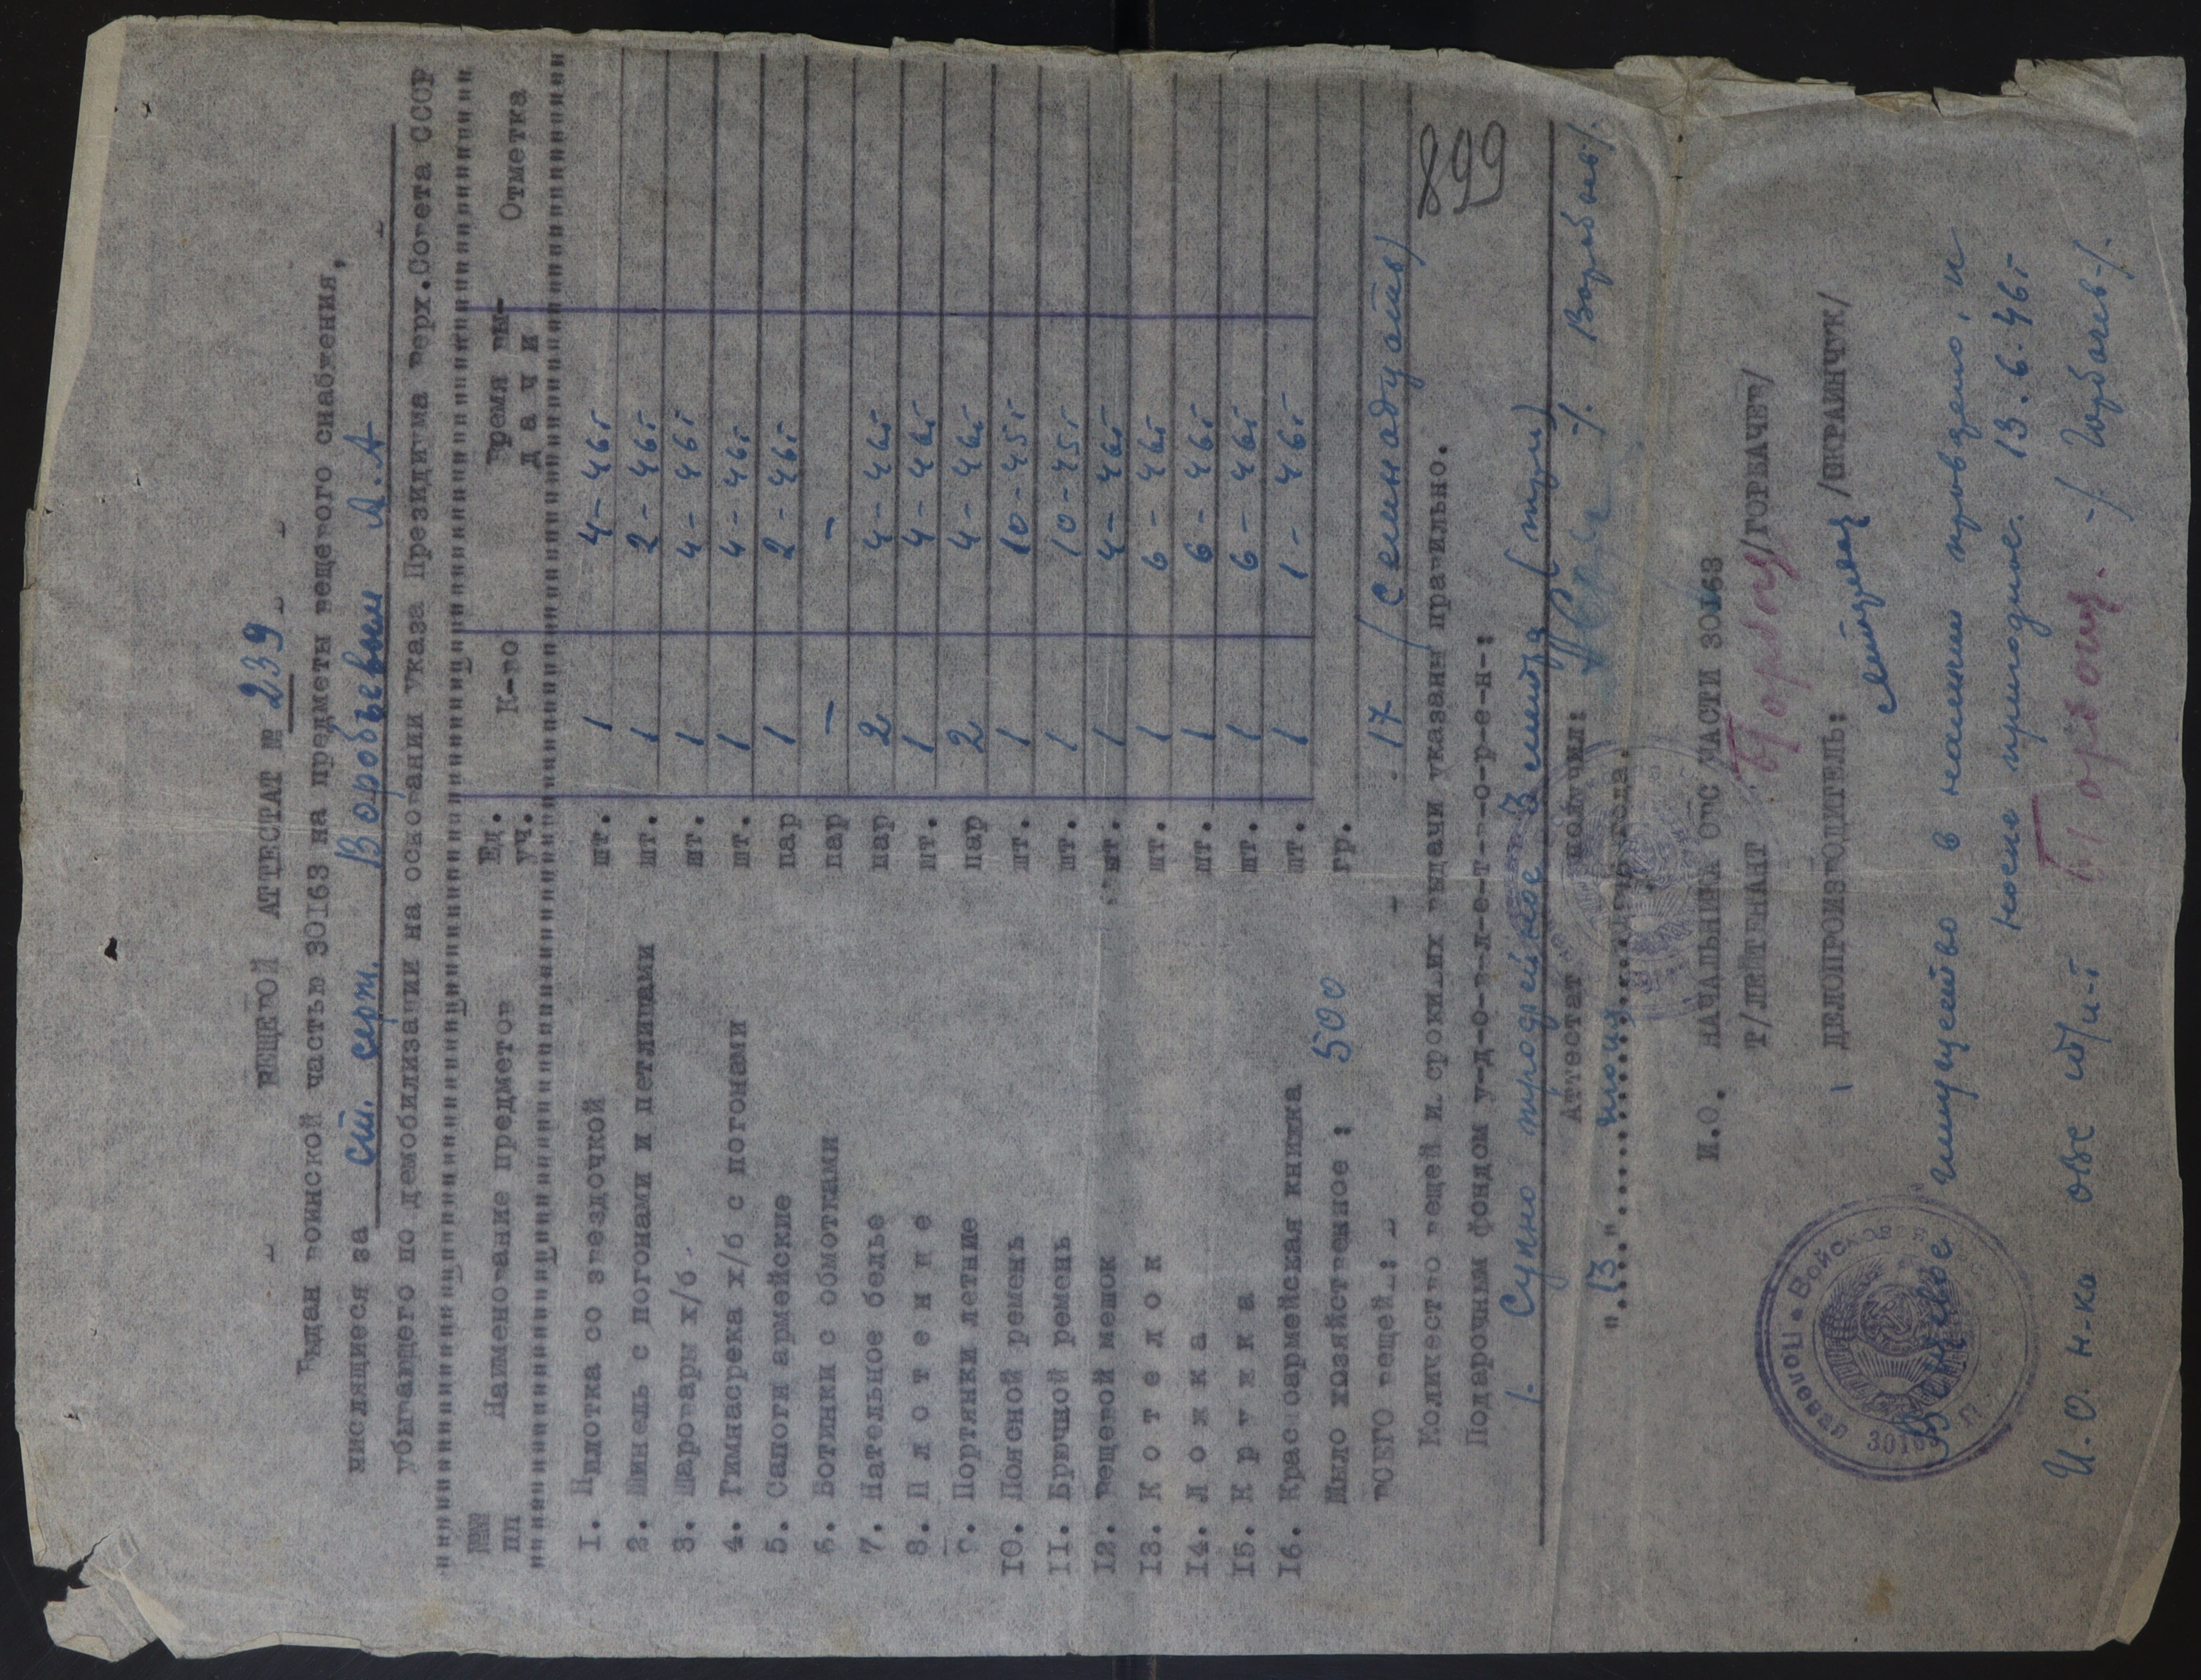 ВЕЩЕВОЙ АТТЕСТАТ № 239
Выдан воинской частью 30163 на предметы вещевого снабжения,
числящиеся за ст. серж. Воробьевым А.А
убывающего по демобилизации на основании указа Президиума Верх.Совета СССР
№№ пп Наименование предметов Ед. уч. К-во Время вы-дачи Отметка
1. Пилотка со звездочкой шт. 1 4-46г
2. Шинель с погонами и петлицами шт. 1 2-46г
3. Шаровары х/б шт. 1 4-46г
4. Гимнасрека х/б с погонами шт. 1 4-46г
5. Сапоги армейские пар 1 2-46г
6. Ботинки с обмотками пар - -
7. Нательное белье пар 2 4-46г
8. П л о т е н ц е шт. 1 4-46г
9. Портянки летние пар 2 4-46г
10. Поясной ремень шт. 1 10-45г
11. Брючной ремень шт. 1 10-45г
12. Вещевой мешок шт. 1 4-46г
13. К о т е л о к шт. 1 6-46г
14. Л о ж к а шт. 1 6-46г
15. К р у ж к а шт. 1 6-46г
16. Красноармейская книжка шт. 1 1-46г
Мыло хозяйственное : 500 гр.
ВСЕГО вещей : 17 /семнадцать/
899
Количество вещей и сроки их выдачи указаны правильно.
Подарочным фондом у-д-о-в-л-е-т-в-о-р-е-н-:
1. Сукно трофейное 3 метра (три)
Аттестат получил: /Воробьев/.
"13" июня года.
И.О. НАЧАЛЬНИКА ОВС ЧАСТИ 30163
Т/ЛЕЙТЕНАНТ /ГОРБАЧЕВ/
ДЕЛОПРОИЗВОДИТЕЛЬ: /ШКРАИНЧУК/
Полевая • Войсковая
30163
Вещевое имущество в наличии проверено, и
носке пригодное. 13.6.46г
И.О. н-ка ОВС т/л-т /Горбачев/.